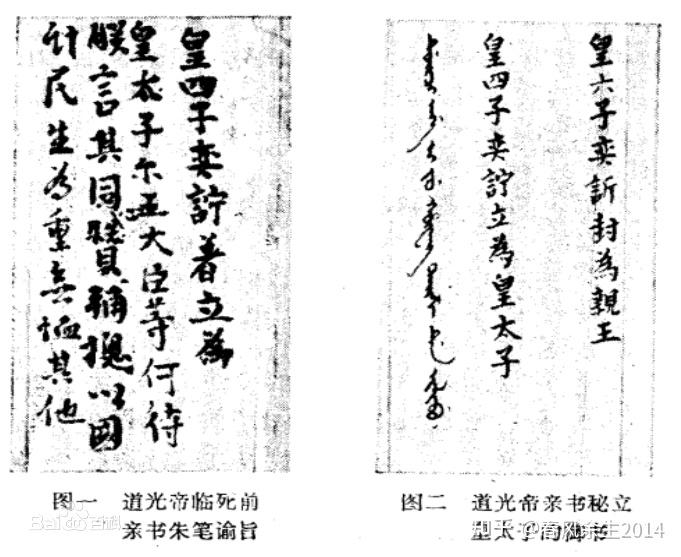 皇四子奕詝著立為
皇太子尔王大臣等何待
朕言其同賛輔揔以國
計民生為重無恤其他
皇六子奕訢封為親王
皇四子奕詝立為皇太子
图一 道光帝临死前
亲书朱笔谕旨
图二 道光帝亲书秘立
皇太子的
Bai 百科
知乎 @春风余生2014